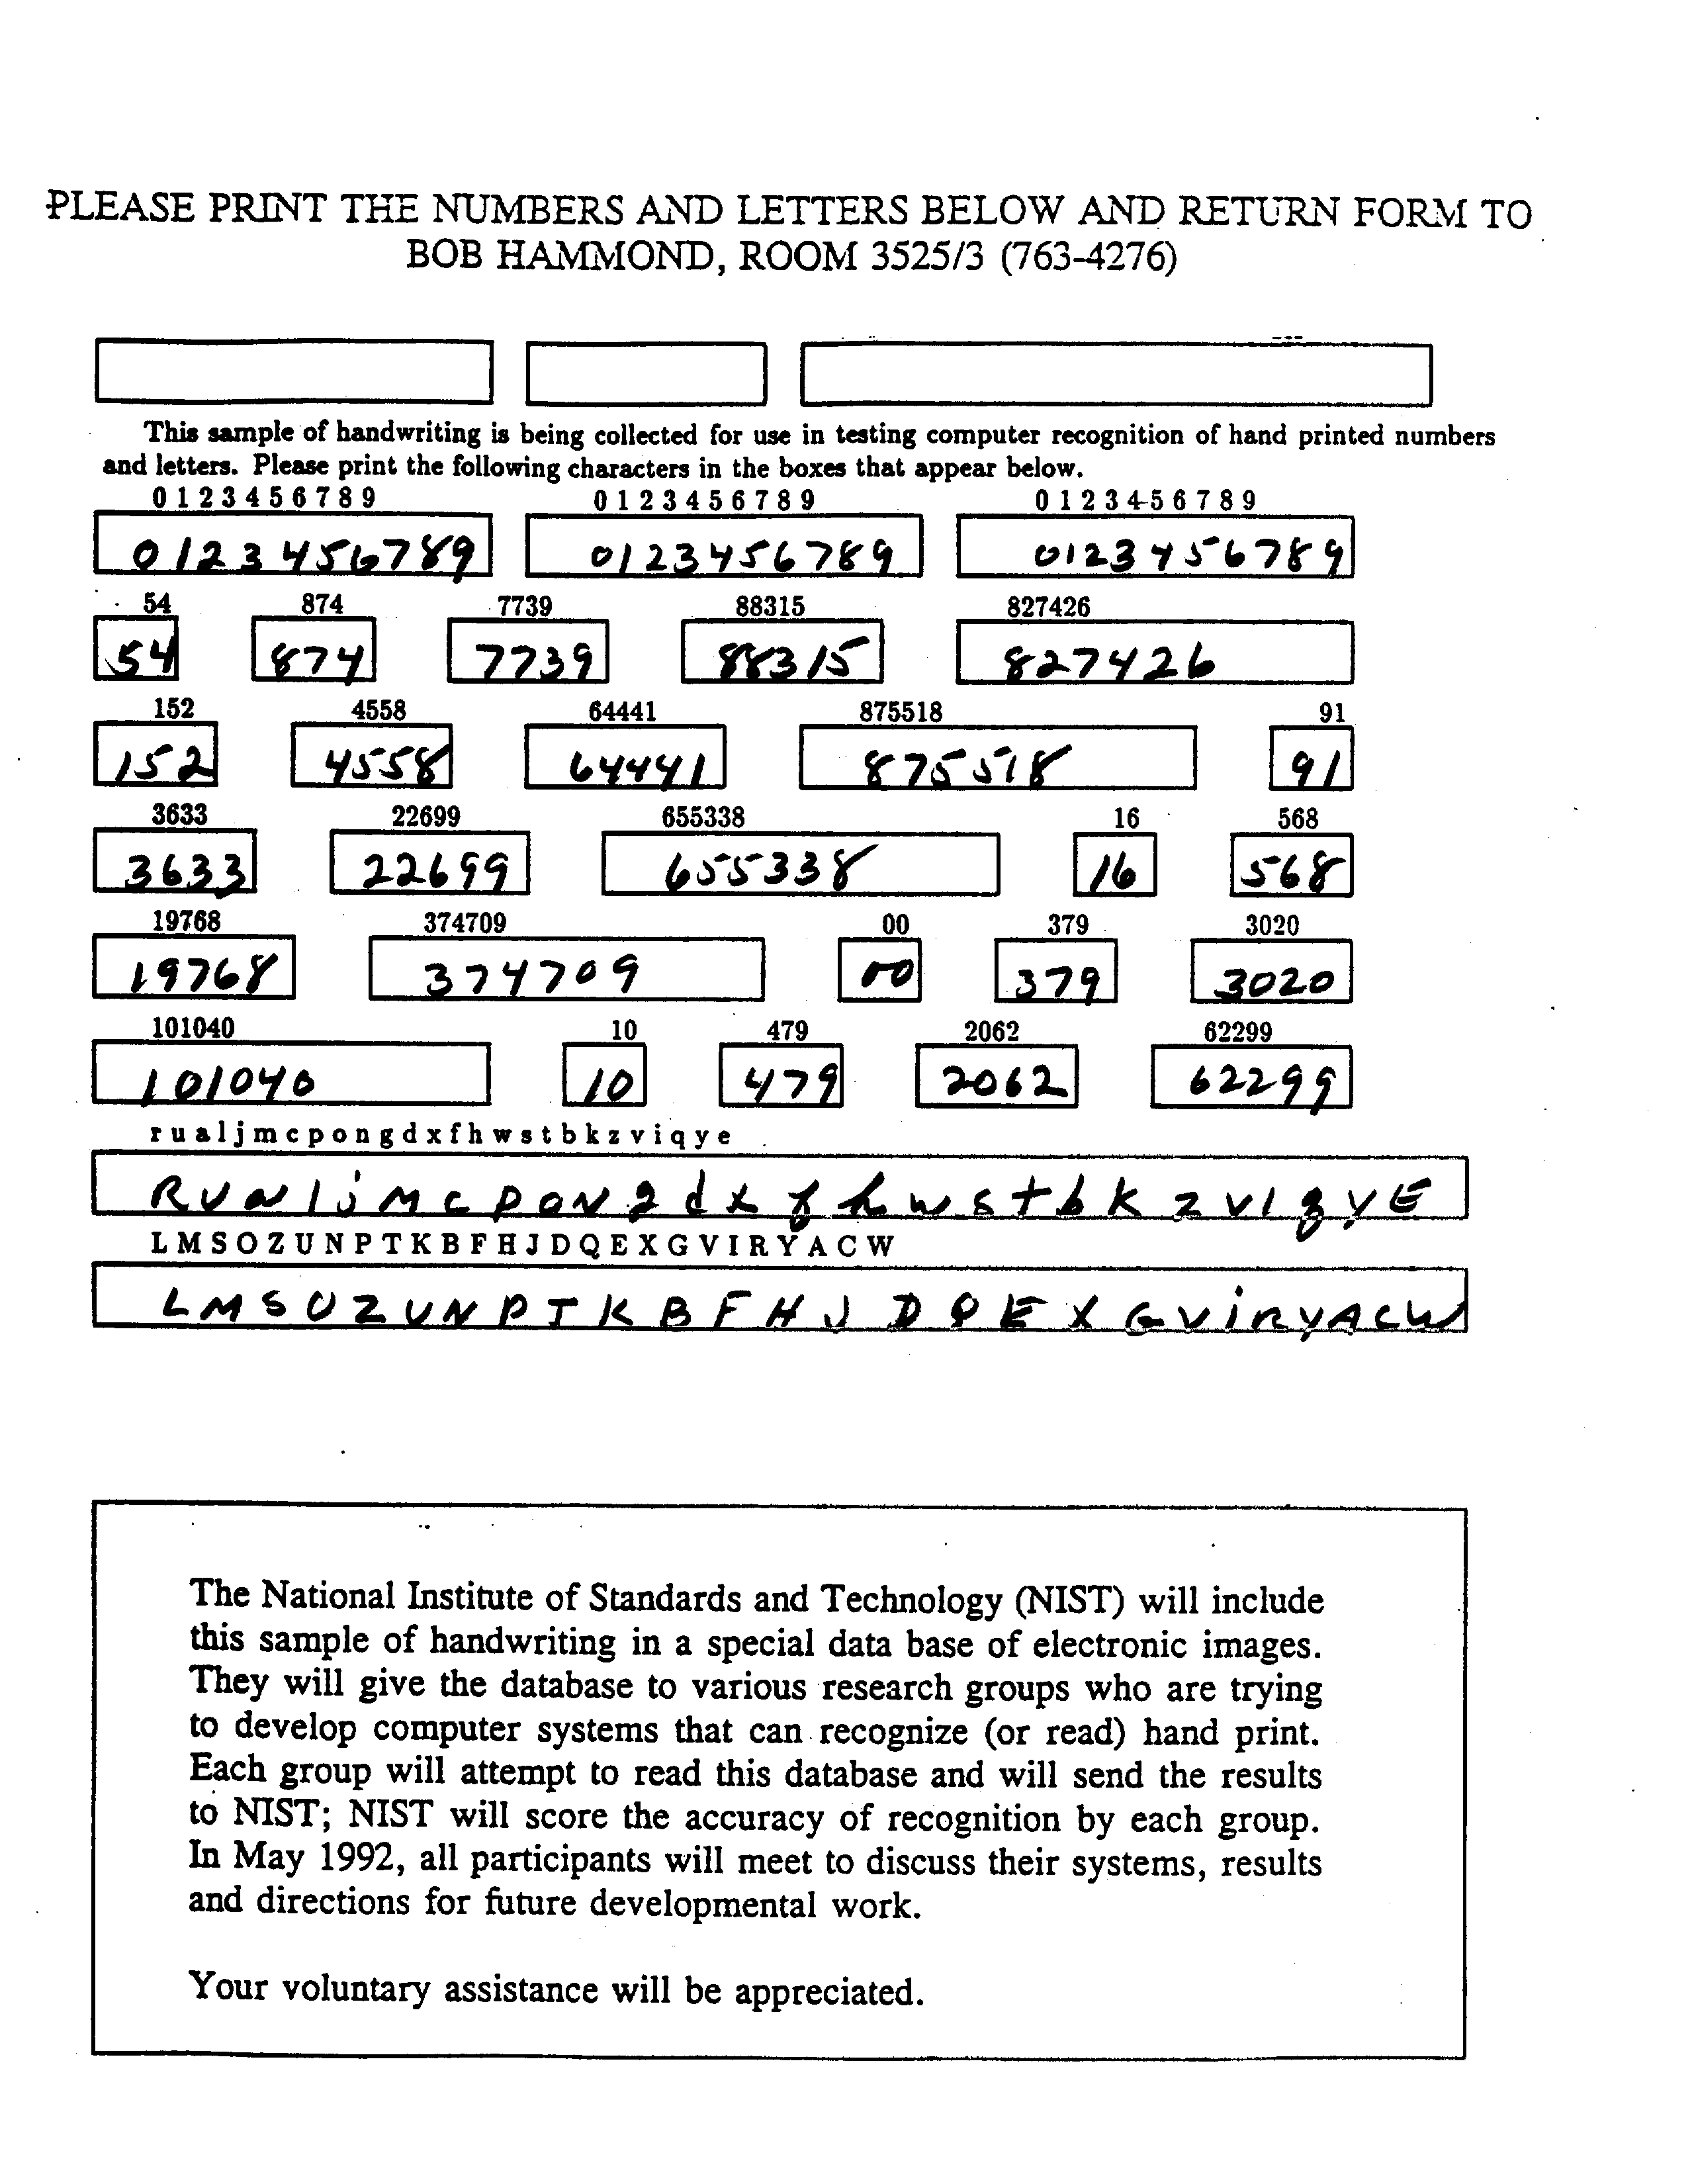 PLEASE PRINT THE NUMBERS AND LETTERS BELOW AND RETURN FORM TO
BOB HAMMOND, ROOM 3525/3 (763-4276)
This sample of handwriting is being collected for use in testing computer recognition of hand printed numbers
and letters. Please print the following characters in the boxes that appear below.
0 1 2 3 4 5 6 7 8 9 0 1 2 3 4 5 6 7 8 9 0 1 2 3 4 5 6 7 8 9
0123456789 0123456789 0123456789
54 874 7739 88315 827426
54 874 7739 88315 827426
152 4558 64441 875518 91
152 4558 64441 875518 91
3633 22699 655338 16 568
3633 22699 655338 16 568
19768 374709 00 379 3020
19768 374709 00 379 3020
101040 10 479 2062 62299
101040 10 479 2062 62299
r u a l j m c p o n g d x f h w s t b k z v i q y e
R U a l j M C P O N g d x f h w s t b k z v i q y E
L M S O Z U N P T K B F H J D Q E X G V I R Y A C W
L M S O Z U N P T K B F H J D Q E X G V i R Y A C W
The National Institute of Standards and Technology (NIST) will include
this sample of handwriting in a special data base of electronic images.
They will give the database to various research groups who are trying
to develop computer systems that can recognize (or read) hand print.
Each group will attempt to read this database and will send the results
to NIST; NIST will score the accuracy of recognition by each group.
In May 1992, all participants will meet to discuss their systems, results
and directions for future developmental work.
Your voluntary assistance will be appreciated.